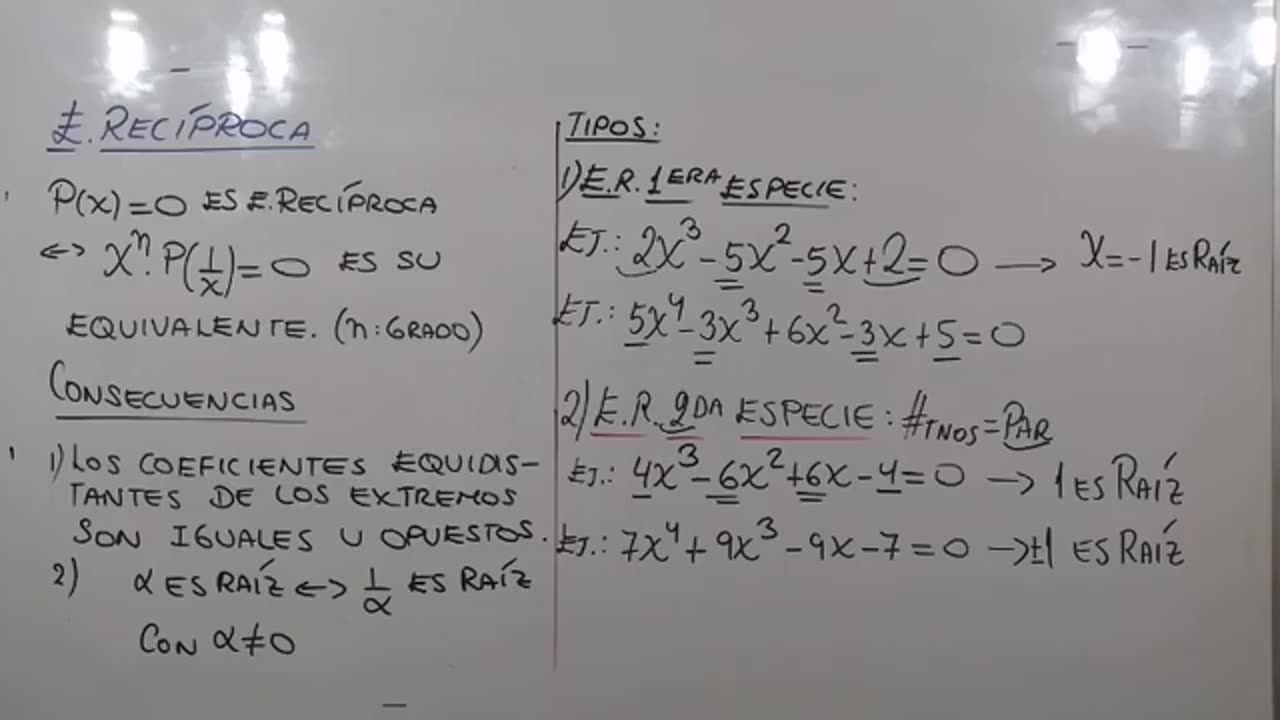 E. RECÍPROCA
P(x)=0 ES E. RECÍPROCA
<-> xⁿ. P(1/x)=0 ES SU
EQUIVALENTE. (n: GRADO)
CONSECUENCIAS
1) LOS COEFICIENTES EQUIDIS-
TANTES DE LOS EXTREMOS
SON IGUALES U OPUESTOS.
2) α ES RAÍZ <-> 1/α ES RAÍZ
CON α≠0
TIPOS:
1) E.R. 1ERA ESPECIE:
EJ.: 2x³-5x²-5x+2=0 → x=-1 ES RAÍZ
EJ.: 5x⁴-3x³+6x²-3x+5=0
2) E.R. 2DA ESPECIE: #TNOS=PAR
EJ.: 4x³-6x²+6x-4=0 → 1 ES RAÍZ
EJ.: 7x⁴+9x³-9x-7=0 → ±1 ES RAÍZ